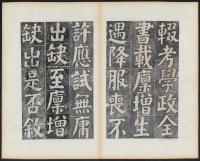 輟考學政全
書載廩增生
遇降服喪不
許應試無庸
出缺至廩增
缺出是否敘